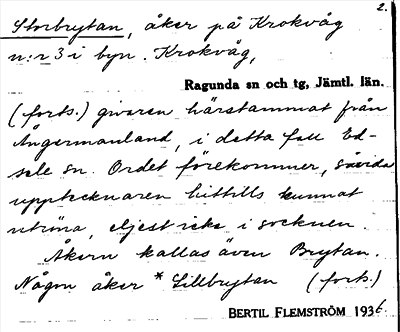 2.
Storbrytan, åker på Krokvåg
n:r 3 i byn. Krokvåg,
Ragunda sn och tg, Jämtl. län.
(forts.) givaren härstammat från
Ångermanland, i detta fall Ed-
sele sn. Ordet förekommer, såvida
upptecknaren hittills kunnat
utröna, eljest icke i socknen.
Åkern kallas även Brytan.
Någon åker * Lillbrytan (forts.)
BERTIL FLEMSTRÖM 1936